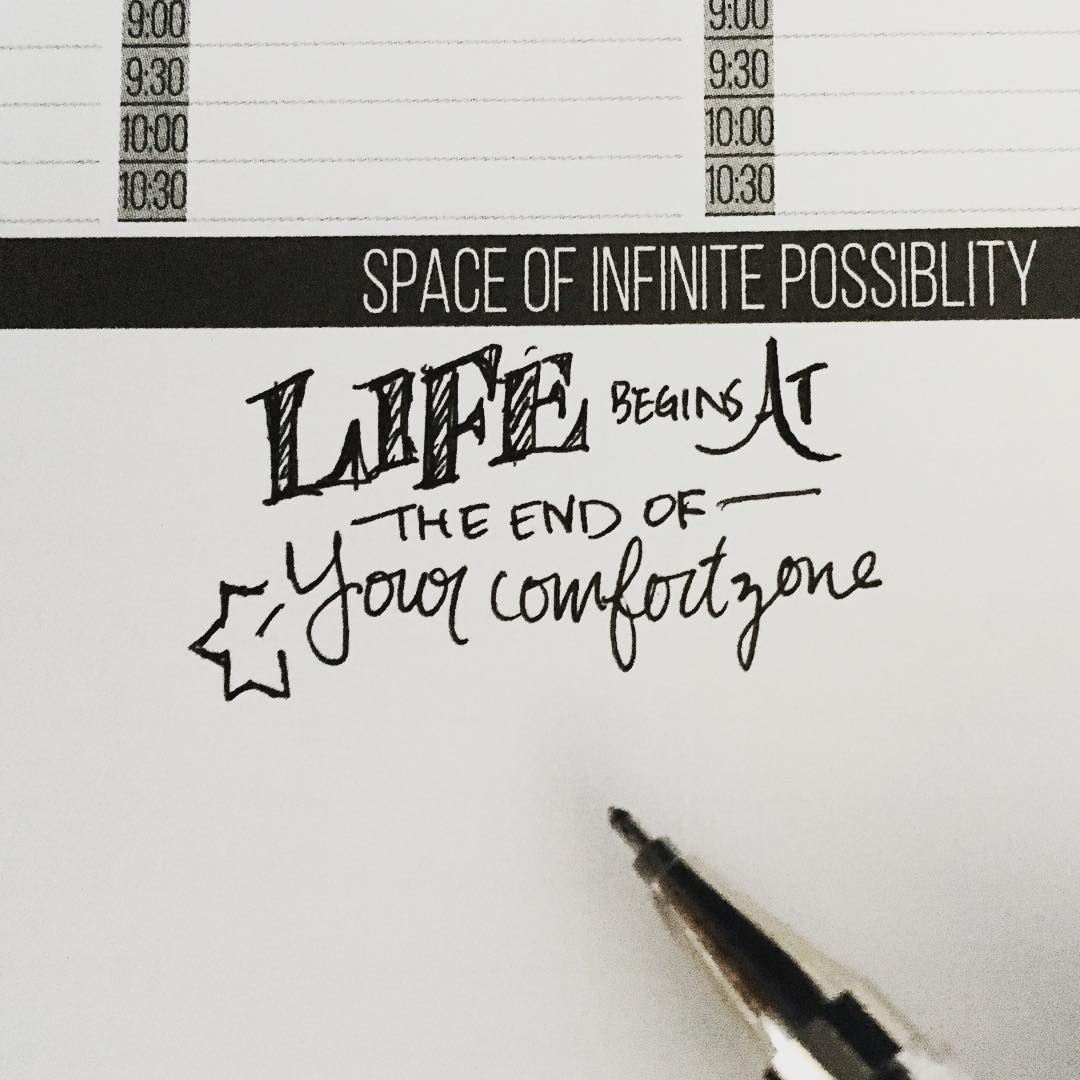 9:00 9:00
9:30 9:30
10:00 10:00
10:30 10:30
SPACE OF INFINITE POSSIBLITY
LIFE BEGINS AT
THE END OF
Your comfort zone